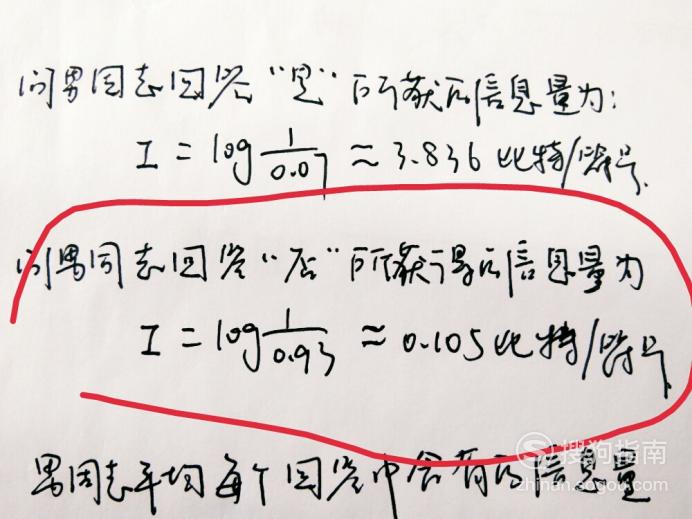 问男同志回答“是”所获的信息量为:
I = log 1/0.07 ≈ 3.836 比特/符号.
问男同志回答“否”所获得的信息量为
I = log 1/0.93 ≈ 0.105 比特/符号
男同志平均每个回答中含有的信息量
搜狗指南
zhinan.sogou.com